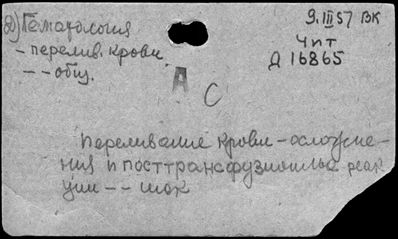 2) Гематология
- перелив. крови
- - общ.
9.III 57 ВК
Чит
Д 16865
А
С
Переливание крови - осложне-
ния и посттрансфузионные реак
ции - - шок